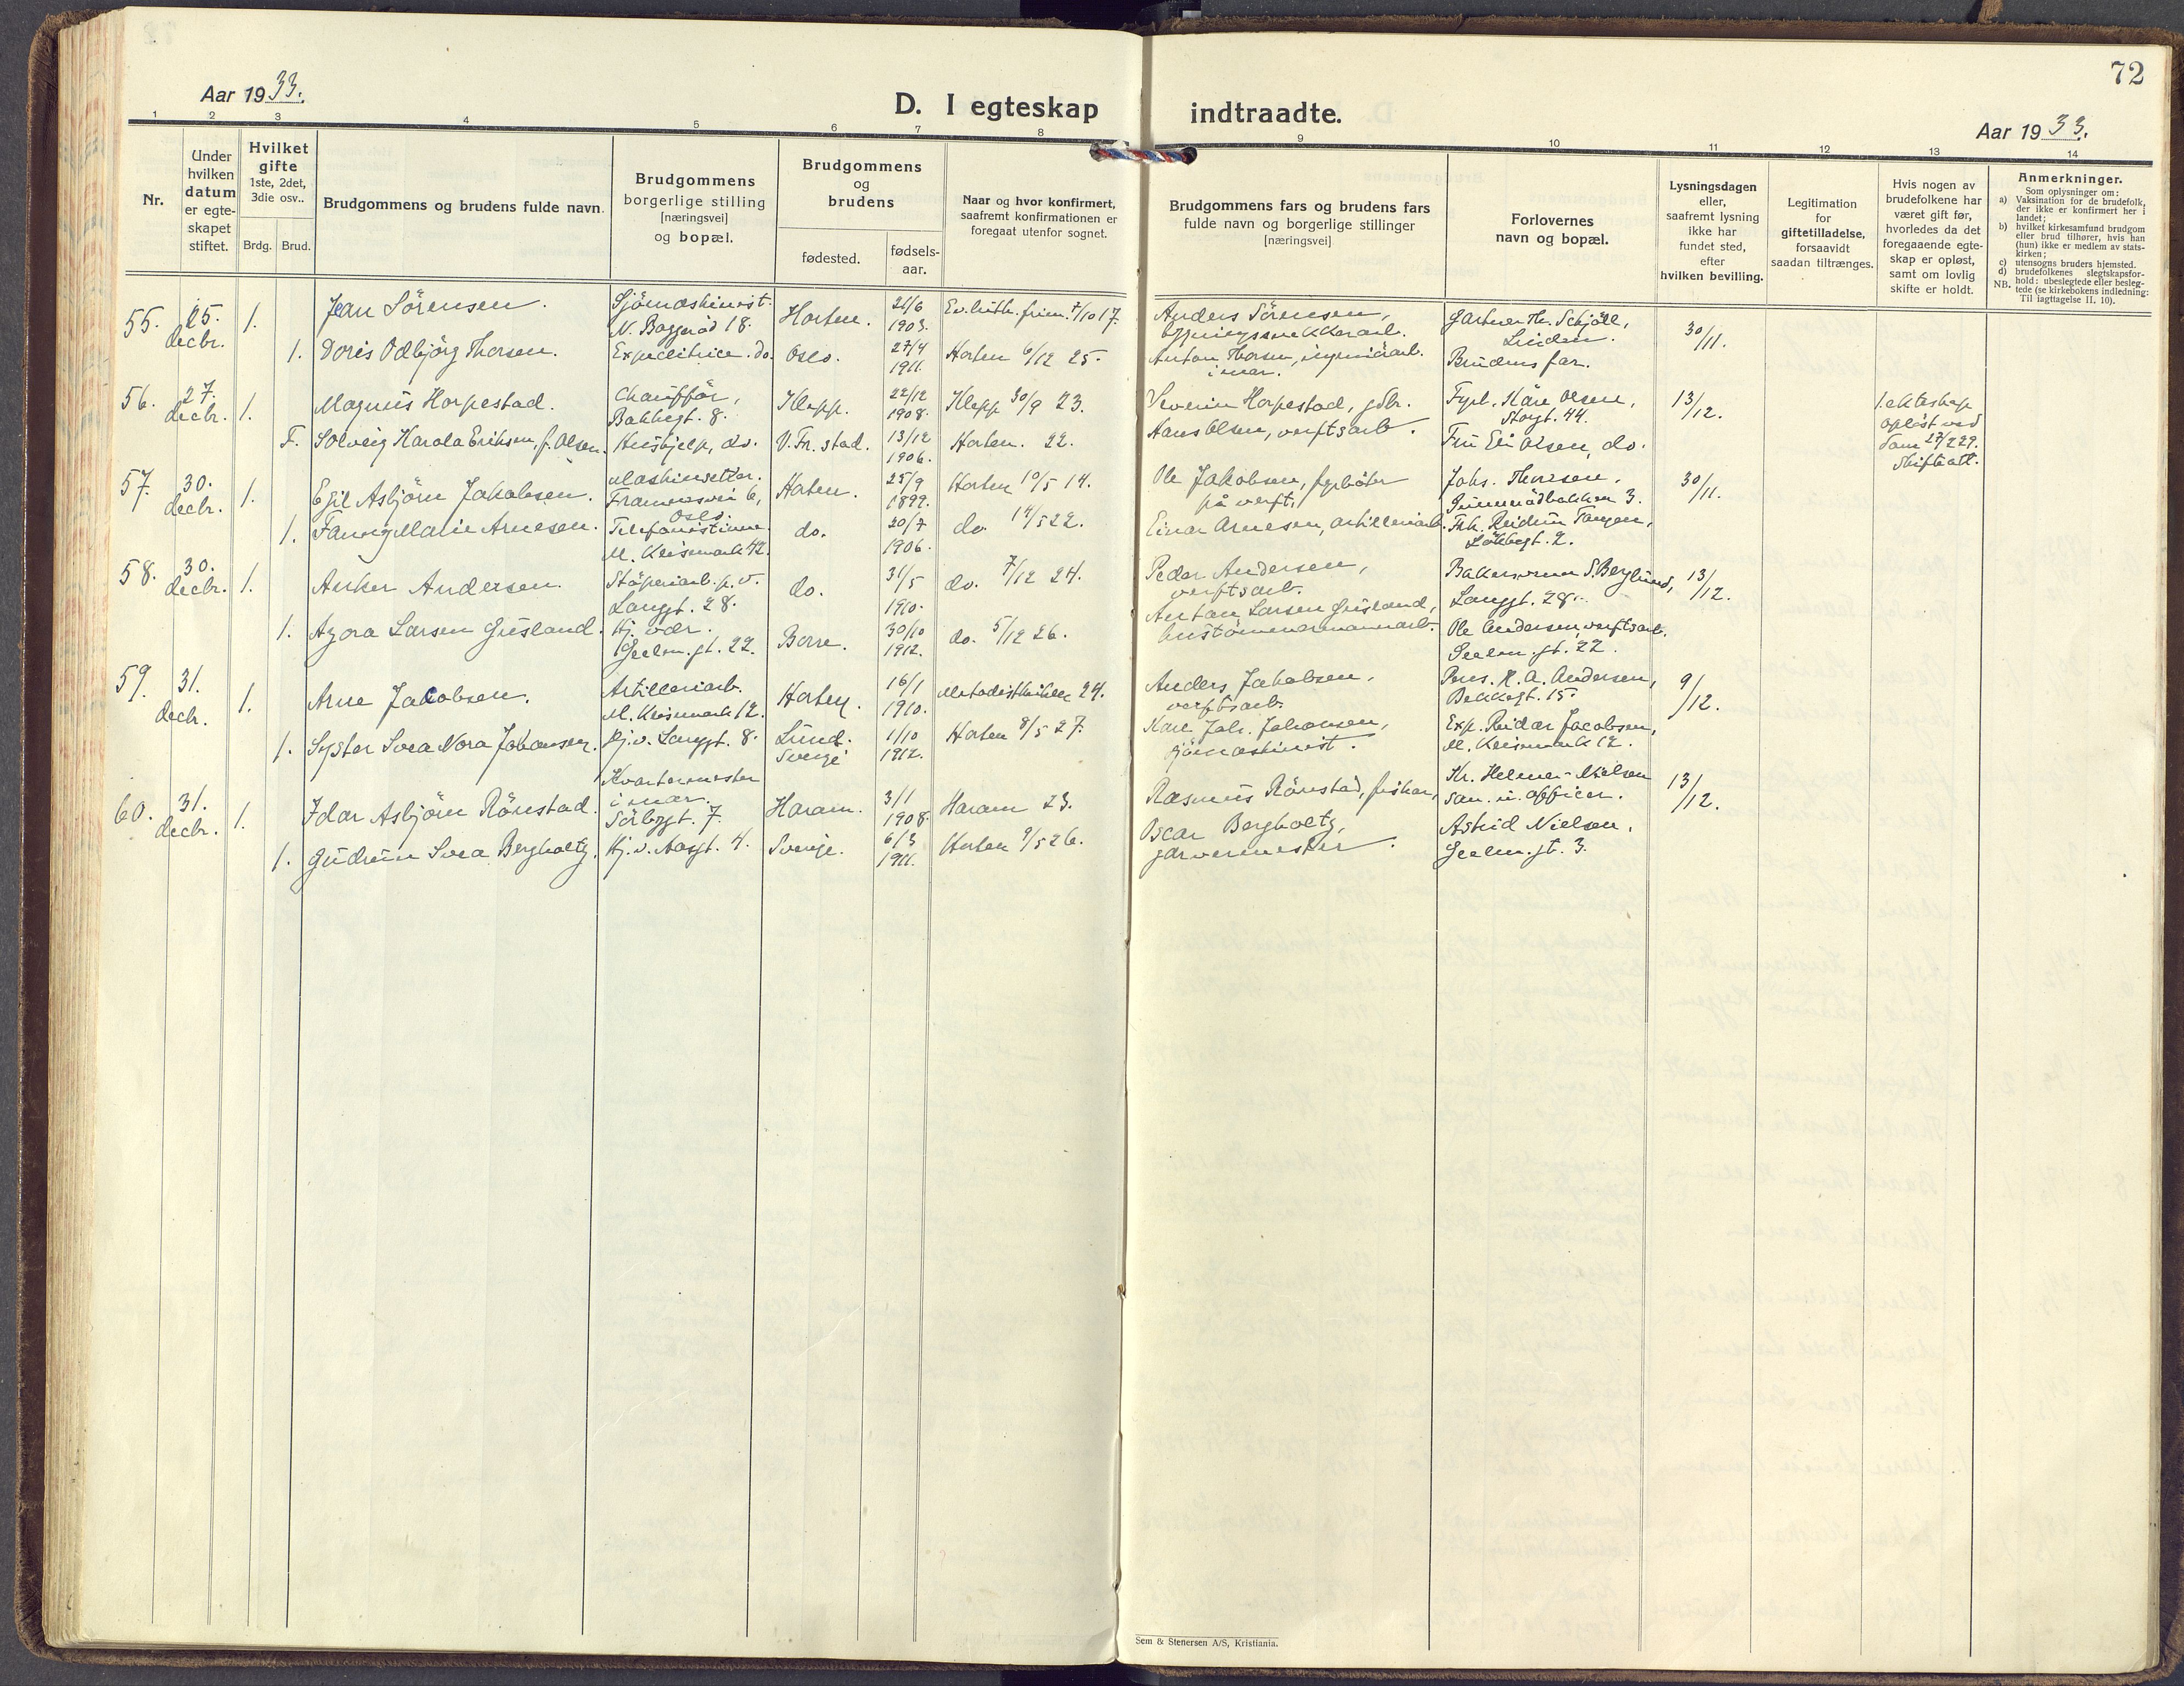 72
Aar 1933.
D. I egteskap indtraadte.
Aar 1933.
1 2 3 4 5 6 7 8 9 10 11 12 13 14
Nr.
Under hvilken datum er egte-skapet stiftet.
Hvilket gifte 1ste, 2det, 3die osv..
Brdg. Brud.
Brudgommens og brudens fulde navn.
Brudgommens borgerlige stilling [næringsvei] og bopæl.
Brudgommens og brudens
fødested.
fødsels-aar.
Naar og hvor konfirmert, saafremt konfirmationen er foregaat utenfor sognet.
Brudgommens fars og brudens fars fulde navn og borgerlige stillinger [næringsvei]
Forlovernes navn og bopæl.
Lysningsdagen eller, saafremt lysning ikke har fundet sted, efter hvilken bevilling.
Legitimation for giftetilladelse, forsaavidt saadan tiltrænges.
Hvis nogen av brudefolkene har været gift før, hvorledes da det foregaaende egte-skap er opløst, samt om lovlig skifte er holdt.
Anmerkninger.
Som oplysninger om:
a) Vaksination for de brudefolk, der ikke er konfirmert her i landet;
b) hvilket kirkesamfund brudgom eller brud tilhører, hvis han (hun) ikke er medlem av stats-kirken;
c) utensogns bruders hjemsted.
d) brudefolkenes slegtskapsfor-hold: ubeslegtede eller besleg-tede (se kirkebokens indledning:
NB. Til iagttagelse II. 10).
55. 25. decbr. 1. Jean Sörensen. Sjömaskinist. N. Baggeröd 18. Horten. 24/6 1903. Ev. luth. frim. 7/10 17. Anders Sörensen, Gartner Th. Schjöll, Linden. 30/11.
1. Doris Odbjörg Thorsen. Expeditrice. do. Oslo. 27/4 1911. Horten 6/12 25. Anton Thorsen, ingeniörarb. i mar. Brudens far.
56. 27. decbr. 1. Magnus Horpestad. Chaufför, Bakkegt. 8. Klepp. 22/12 1908. Klepp 30/9 23. Severin Horpestad, gdbr. Fyrb. Kåre Olsen, Storgt. 44. 13/12. 1. ekteskap opløst ved dom 27/2 29. Skifteatt.
F. Solveig Karola Eriksen, f. Olsen. Hushjelp, do. V. Fr. stad. 13/12 1906. Horten. 22. Hans Olsen, verftsarb. Fru Eli Olsen, do.
57. 30. decbr. 1. Egil Asbjörn Jakobsen. Maskinsetter. Framnesvei 6, Oslo. Horten. 25/9 1899. Horten 10/5 14. Ole Jakobsen, fyrböter på verft, Johs. Thoresen, 30/11.
1. Fanny Marie Arnesen. Telefonistinne. M. Keisemark 42. do. 20/7 1906. do. 14/5 22. Einar Arnesen, artilleriarb. Frk. Reidun Tangen, Lökkegt. 2.
58. 30. decbr. 1. Anker Andersen. Stöperiarb. p. v. Langgt. 28. do. 31/5 1910. do. 7/12 24. Peder Andersen, verftsarb. Bakersvenn S. Berglund, Langgt. 28. 13/12.
1. Agora Larsen Gusland. Hj. vær. Seelm. gt. 22. Borre. 30/10 1912. do. 5/12 26. Anton Larsen Gusland, hustömmermannarb. Ole Andersen, verftsarb. Seelm. gt. 22.
59. 31. decbr. 1. Arne Jacobsen. Artilleriarb. M. Keisemark 12. Horten. 16/1 1910. Metodistkirken 24. Anders Jakobsen, verftsarb. Pens. H. A. Andersen, Bekkegt. 15. 9/12.
1. Syster Svea Nora Johansen. Hj. v. Langgt. 8. Lund. Sverige. 1/10 1912. Horten 8/5 27. Karl Joh. Johansen, sjömaskinist. Exp. Reidar Jacobsen, M. Keisemark 12.
60. 31. decbr. 1. Idar Asbjörn Rönstad. Kvartermester i mar. Sörbygt. 7. Haram. 3/1 1908. Haram 23. Rasmus Rönstad, fisker, Kr. Helmer-Nielsen san. u. officer. 13/12.
1. Gudrun Svea Bergholtz. Hj. v. Aasgt. 4. Sverige. 6/3 1911. Horten 9/5 26. Oscar Bergholtz, garvermester. Astrid Nielsen, Seelm. gt. 3.
Sem & Stenersen A/S, Kristiania.